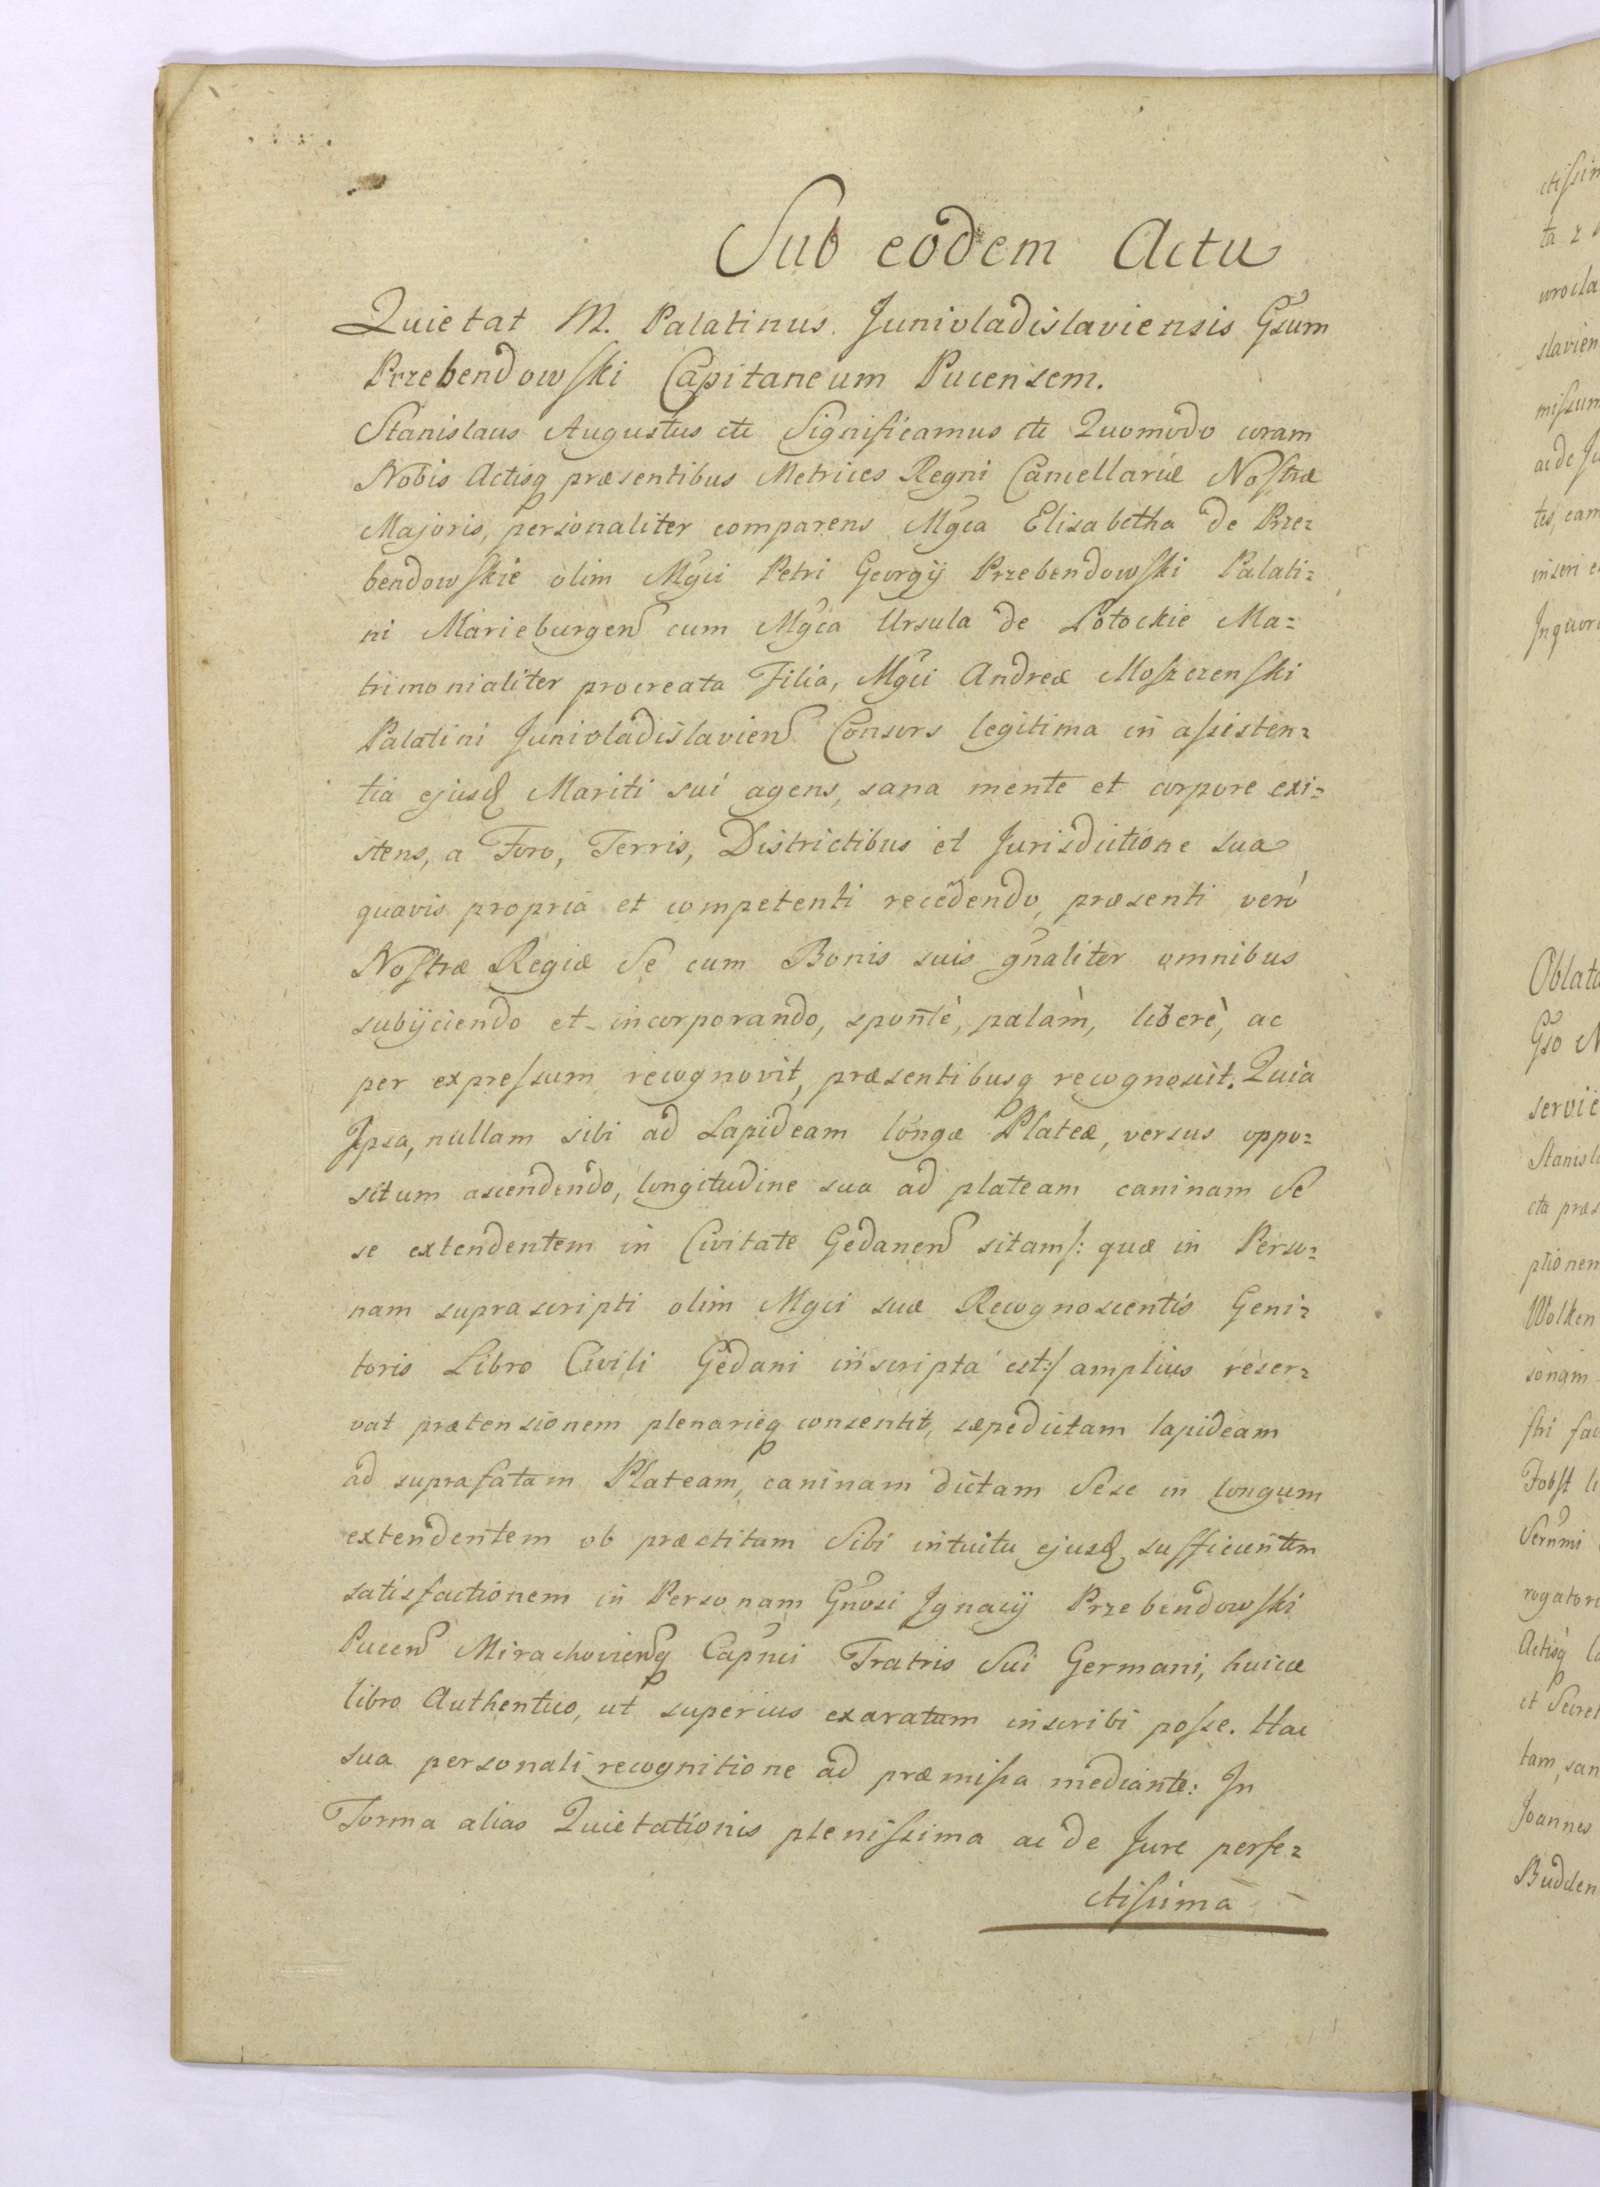 Sub eodem Actu
Quietat M. Palatinus Junivladislaviensis Gsum
Przebendowski Capitaneum Pucensem.
Stanislaus Augustus etc Significamus etc Quomodo coram
Nobis Actisq præsentibus Metrices Regni Cancellariæ Nostræ
Majoris, personaliter comparens Mgca Elisabetha de Prze=
bendowskie olim Mgci Petri Georgij Przebendowski Palati=
ni Marieburgen cum Mgca Ursula de Potockie Ma=
trimonialiter procreata Filia, Mgci Andreæ Moszczenski
Palatini Junivladislavien Consors legitima in assisten=
tia ejusd Mariti sui agens, sana mente et corpore exi=
stens, a Foro, Terris, Districtibus et Jurisdictione sua
quavis propria et competenti recedendo, præsenti verò
Nostræ Regiæ Se cum Bonis suis gnaliter omnibus
subijciendo et incorporando, spontè, palàm, liberè, ac
per expressum recognovit, præsentibusq recognoscit. Quia
Ipsa, nullam sibi ad Lapideam longæ Plateæ, versus oppo=
situm ascendendo, longitudine sua ad plateam caninam Se
se extendentem in Civitate Gedanen sitam/: quæ in Perso=
nam suprascripti olim Mgci suæ Recognoscentis Geni=
toris Libro Civili Gedani inscripta est:/ amplius reser=
vat prætensionem plenarieq consentit, sæpedictam lapideam
ad suprafatam Plateam, caninam dictam Sese in longum
extendentem ob præstitam Sibi intuitu ejusd sufficientem
satisfactionem in Personam Gnosi Ignacij Przebendowski
Pucen Mirachovienq Capnei Fratris Sui Germani, huicæ
libro Authentico, ut superius exaratum inscribi posse. Hac
sua personali recognitione ad præmissa mediante: In
Forma alias Quietationis plenissima ac de Jure perfe=
ctissima
ctissim
ta
wrocla
slavien
missum
ac de Ju
tis, eam
inseri e
Inquor
Oblata
Gso N
servie
Stanisl
cta præs
ptionem
Wolken
sonam
stri fac
Jobst
Sernmi
rogator
Actisq
et Secret
tam, san
Joannes
Budden